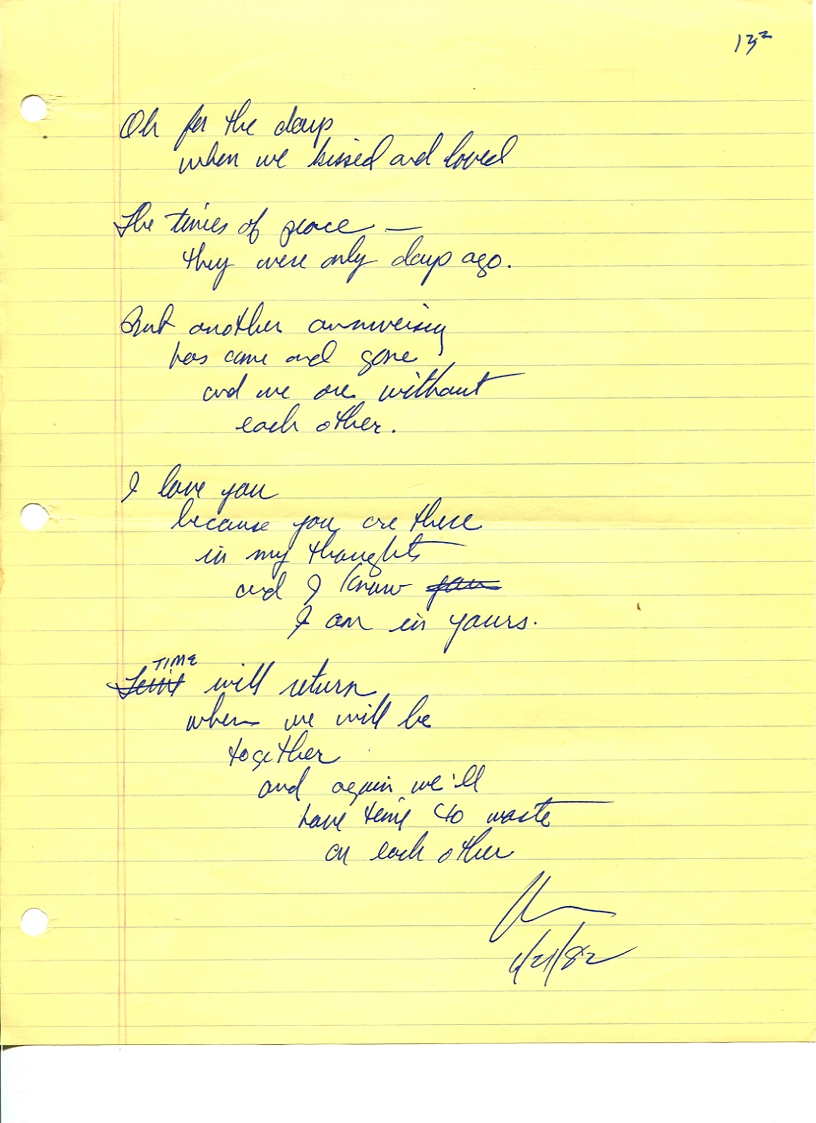 13²
Oh for the days
when we kissed and loved
The times of peace —
they were only days ago.
But another anniversary
has come and gone
and we are without
each other.
I love you
because you are there
in my thoughts
and I know you
I am in yours.
TIME
Time will return
when we will be
together
and again we'll
have time to waste
on each other
4/21/82